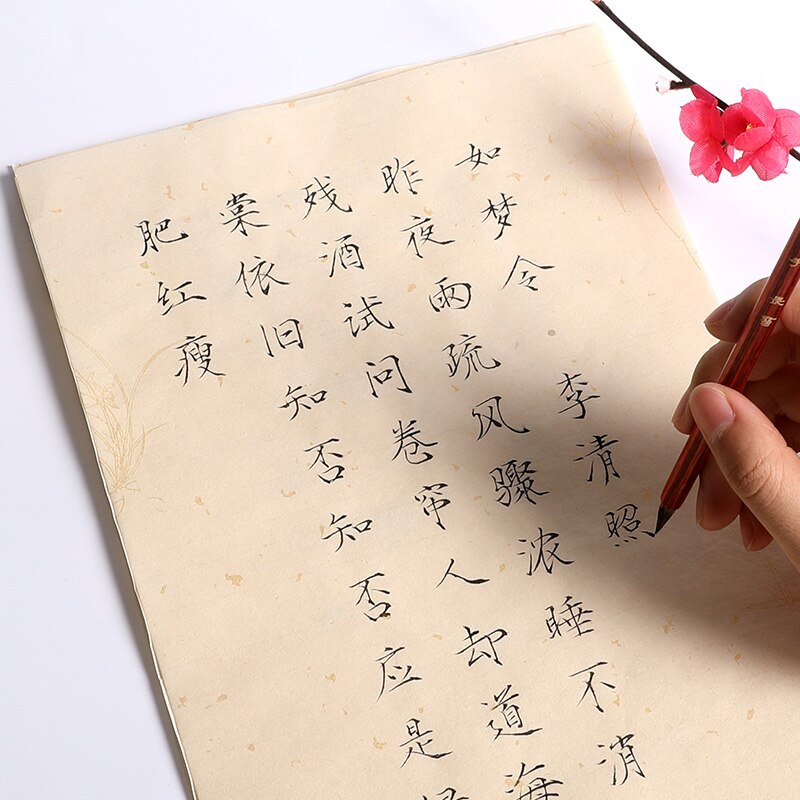 如梦令 李清照
昨夜雨疏风骤浓睡不消
残酒试问卷帘人却道海
棠依旧知否知否应是
肥红瘦